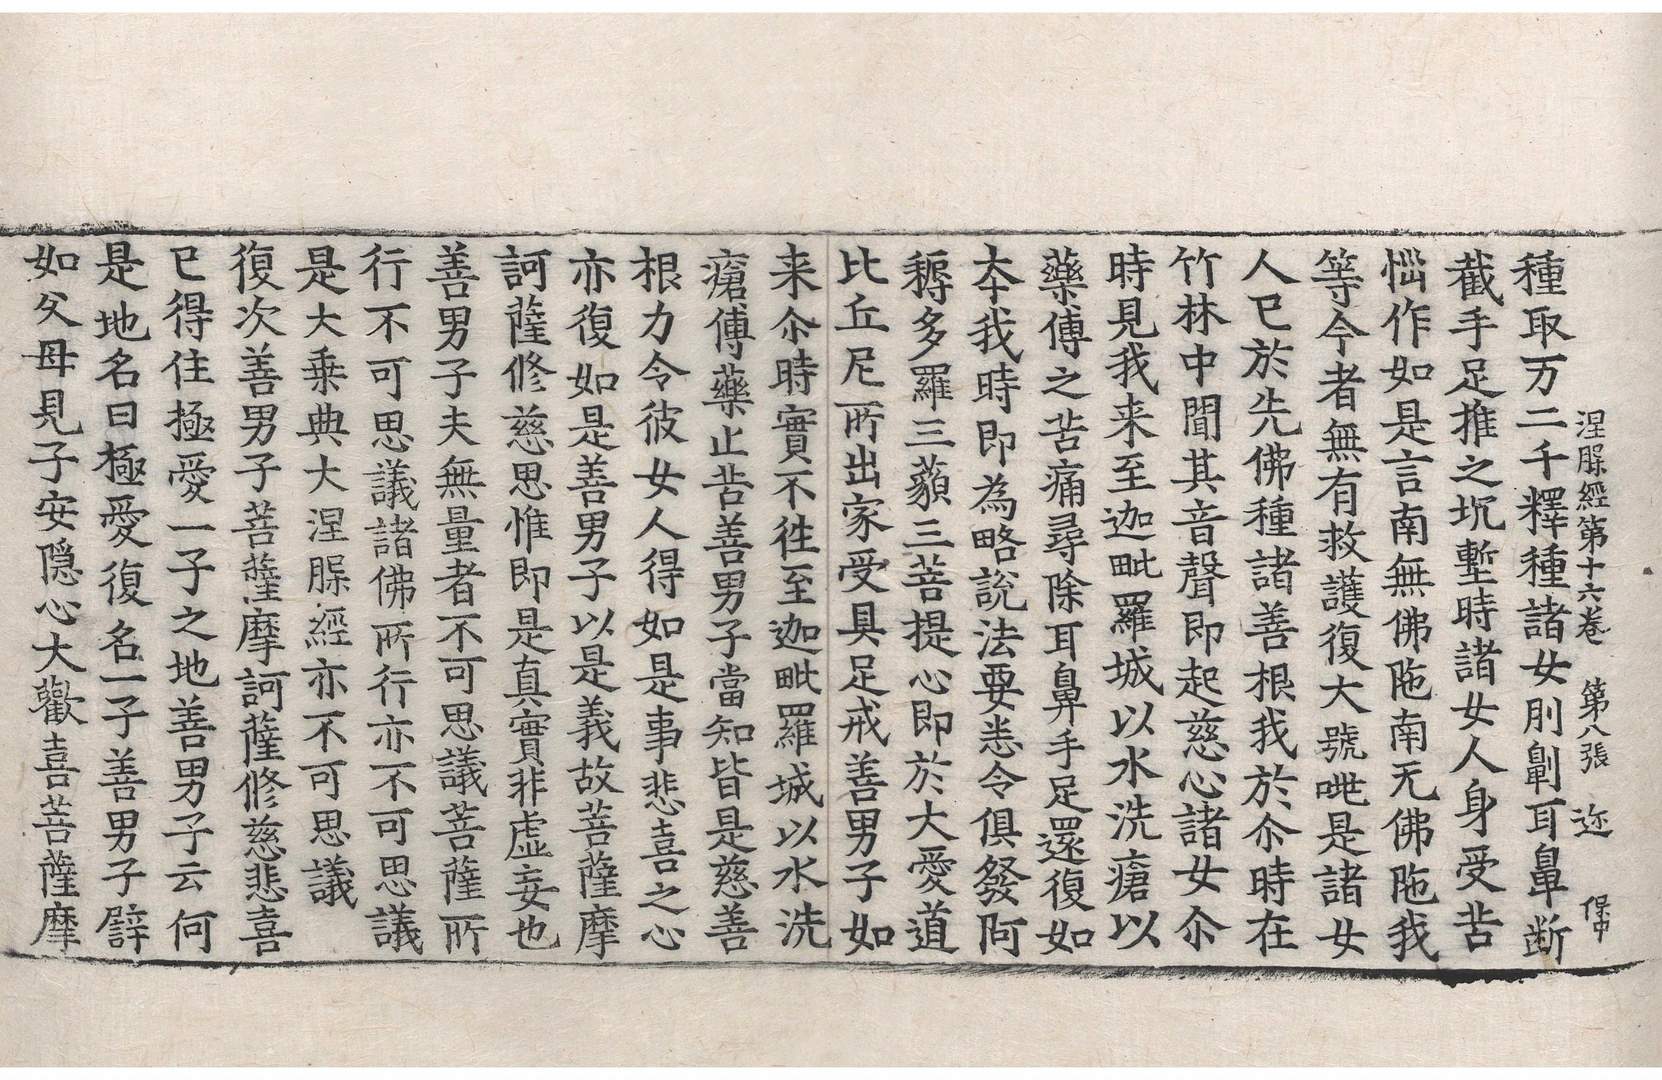 涅𣵀經第十六卷　第八張　迩　保中
種取万二千釋種諸女刖劓耳鼻断
截手足推之坑塹時諸女人身受苦
惱作如是言南無佛陁南无佛陁我
等今者無有救護復大號咷是諸女
人已於先佛種諸善根我於尒時在
竹林中聞其音聲即起慈心諸女尒
時見我来至迦毗羅城以水洗瘡以
藥傅之苦痛尋除耳鼻手足還復如
夲我時即為略說法要悉令俱發阿
耨多羅三藐三菩提心即於大愛道
比丘尼所出家受具足戒善男子如
来尒時實不徃至迦毗羅城以水洗
瘡傅藥止苦善男子當知皆是慈善
根力令彼女人得如是事悲喜之心
亦復如是善男子以是義故菩薩摩
訶薩修慈思惟即是真實非虛妄也
善男子夫無量者不可思議菩薩所
行不可思議諸佛所行亦不可思議
是大乗典大涅𣵀經亦不可思議
復次善男子菩薩摩訶薩修慈悲喜
已得住極愛一子之地善男子云何
是地名曰極愛復名一子善男子譬
如父母見子安隱心大歡喜菩薩摩